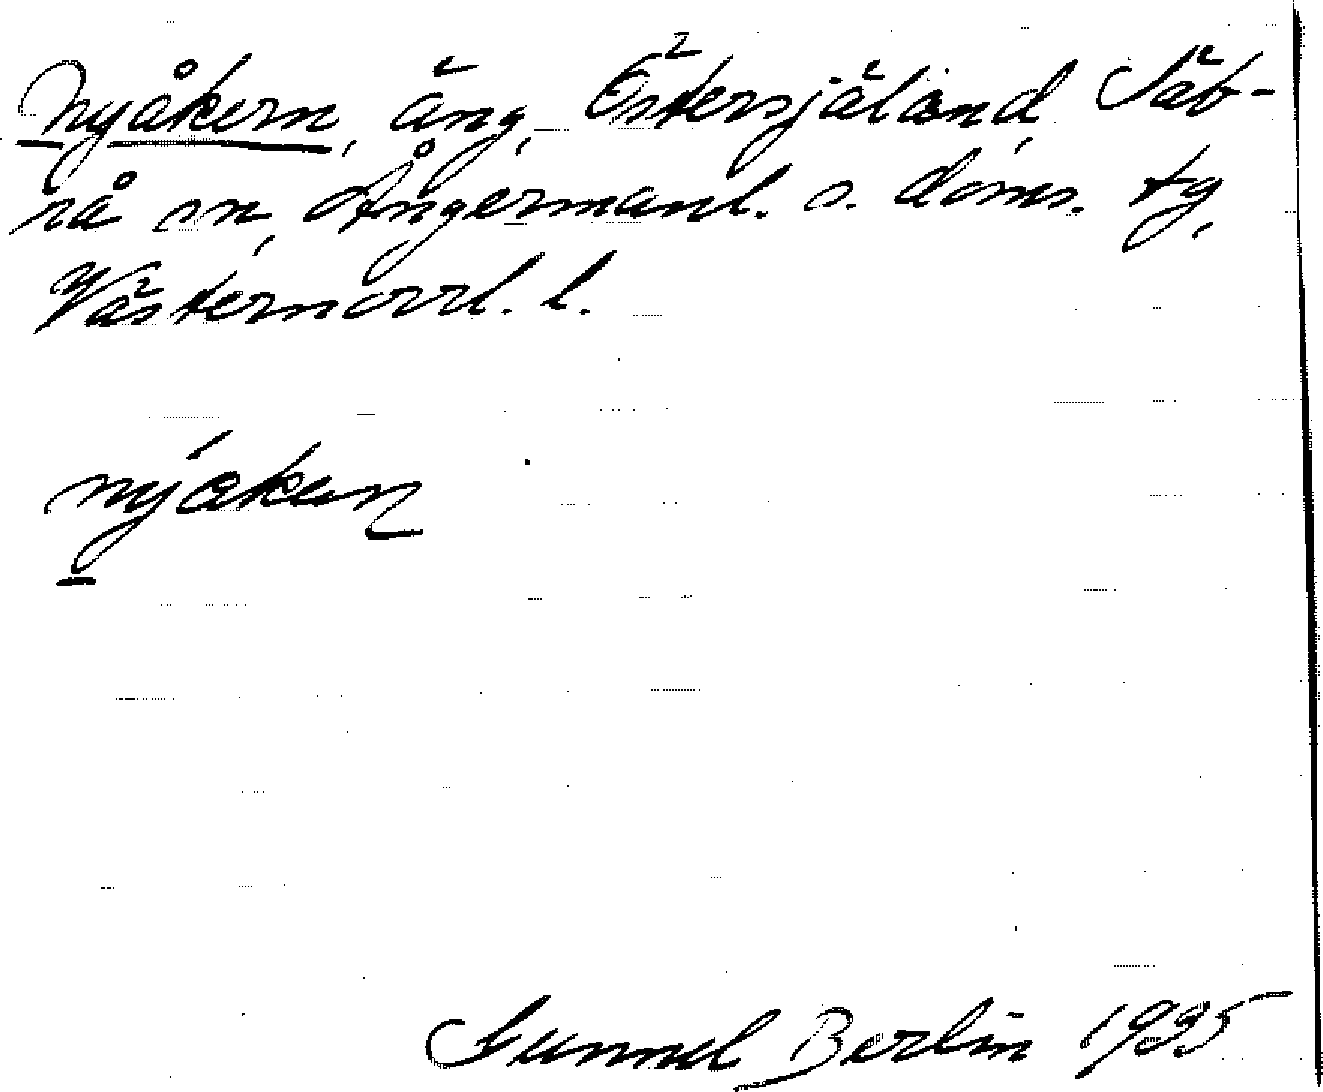 Nyåkern, äng, Östersjäland, Säb-
rå sn, Ångermanl. s. doms. tg,
Västernorrl. l.
Gunnel Berlin 1935